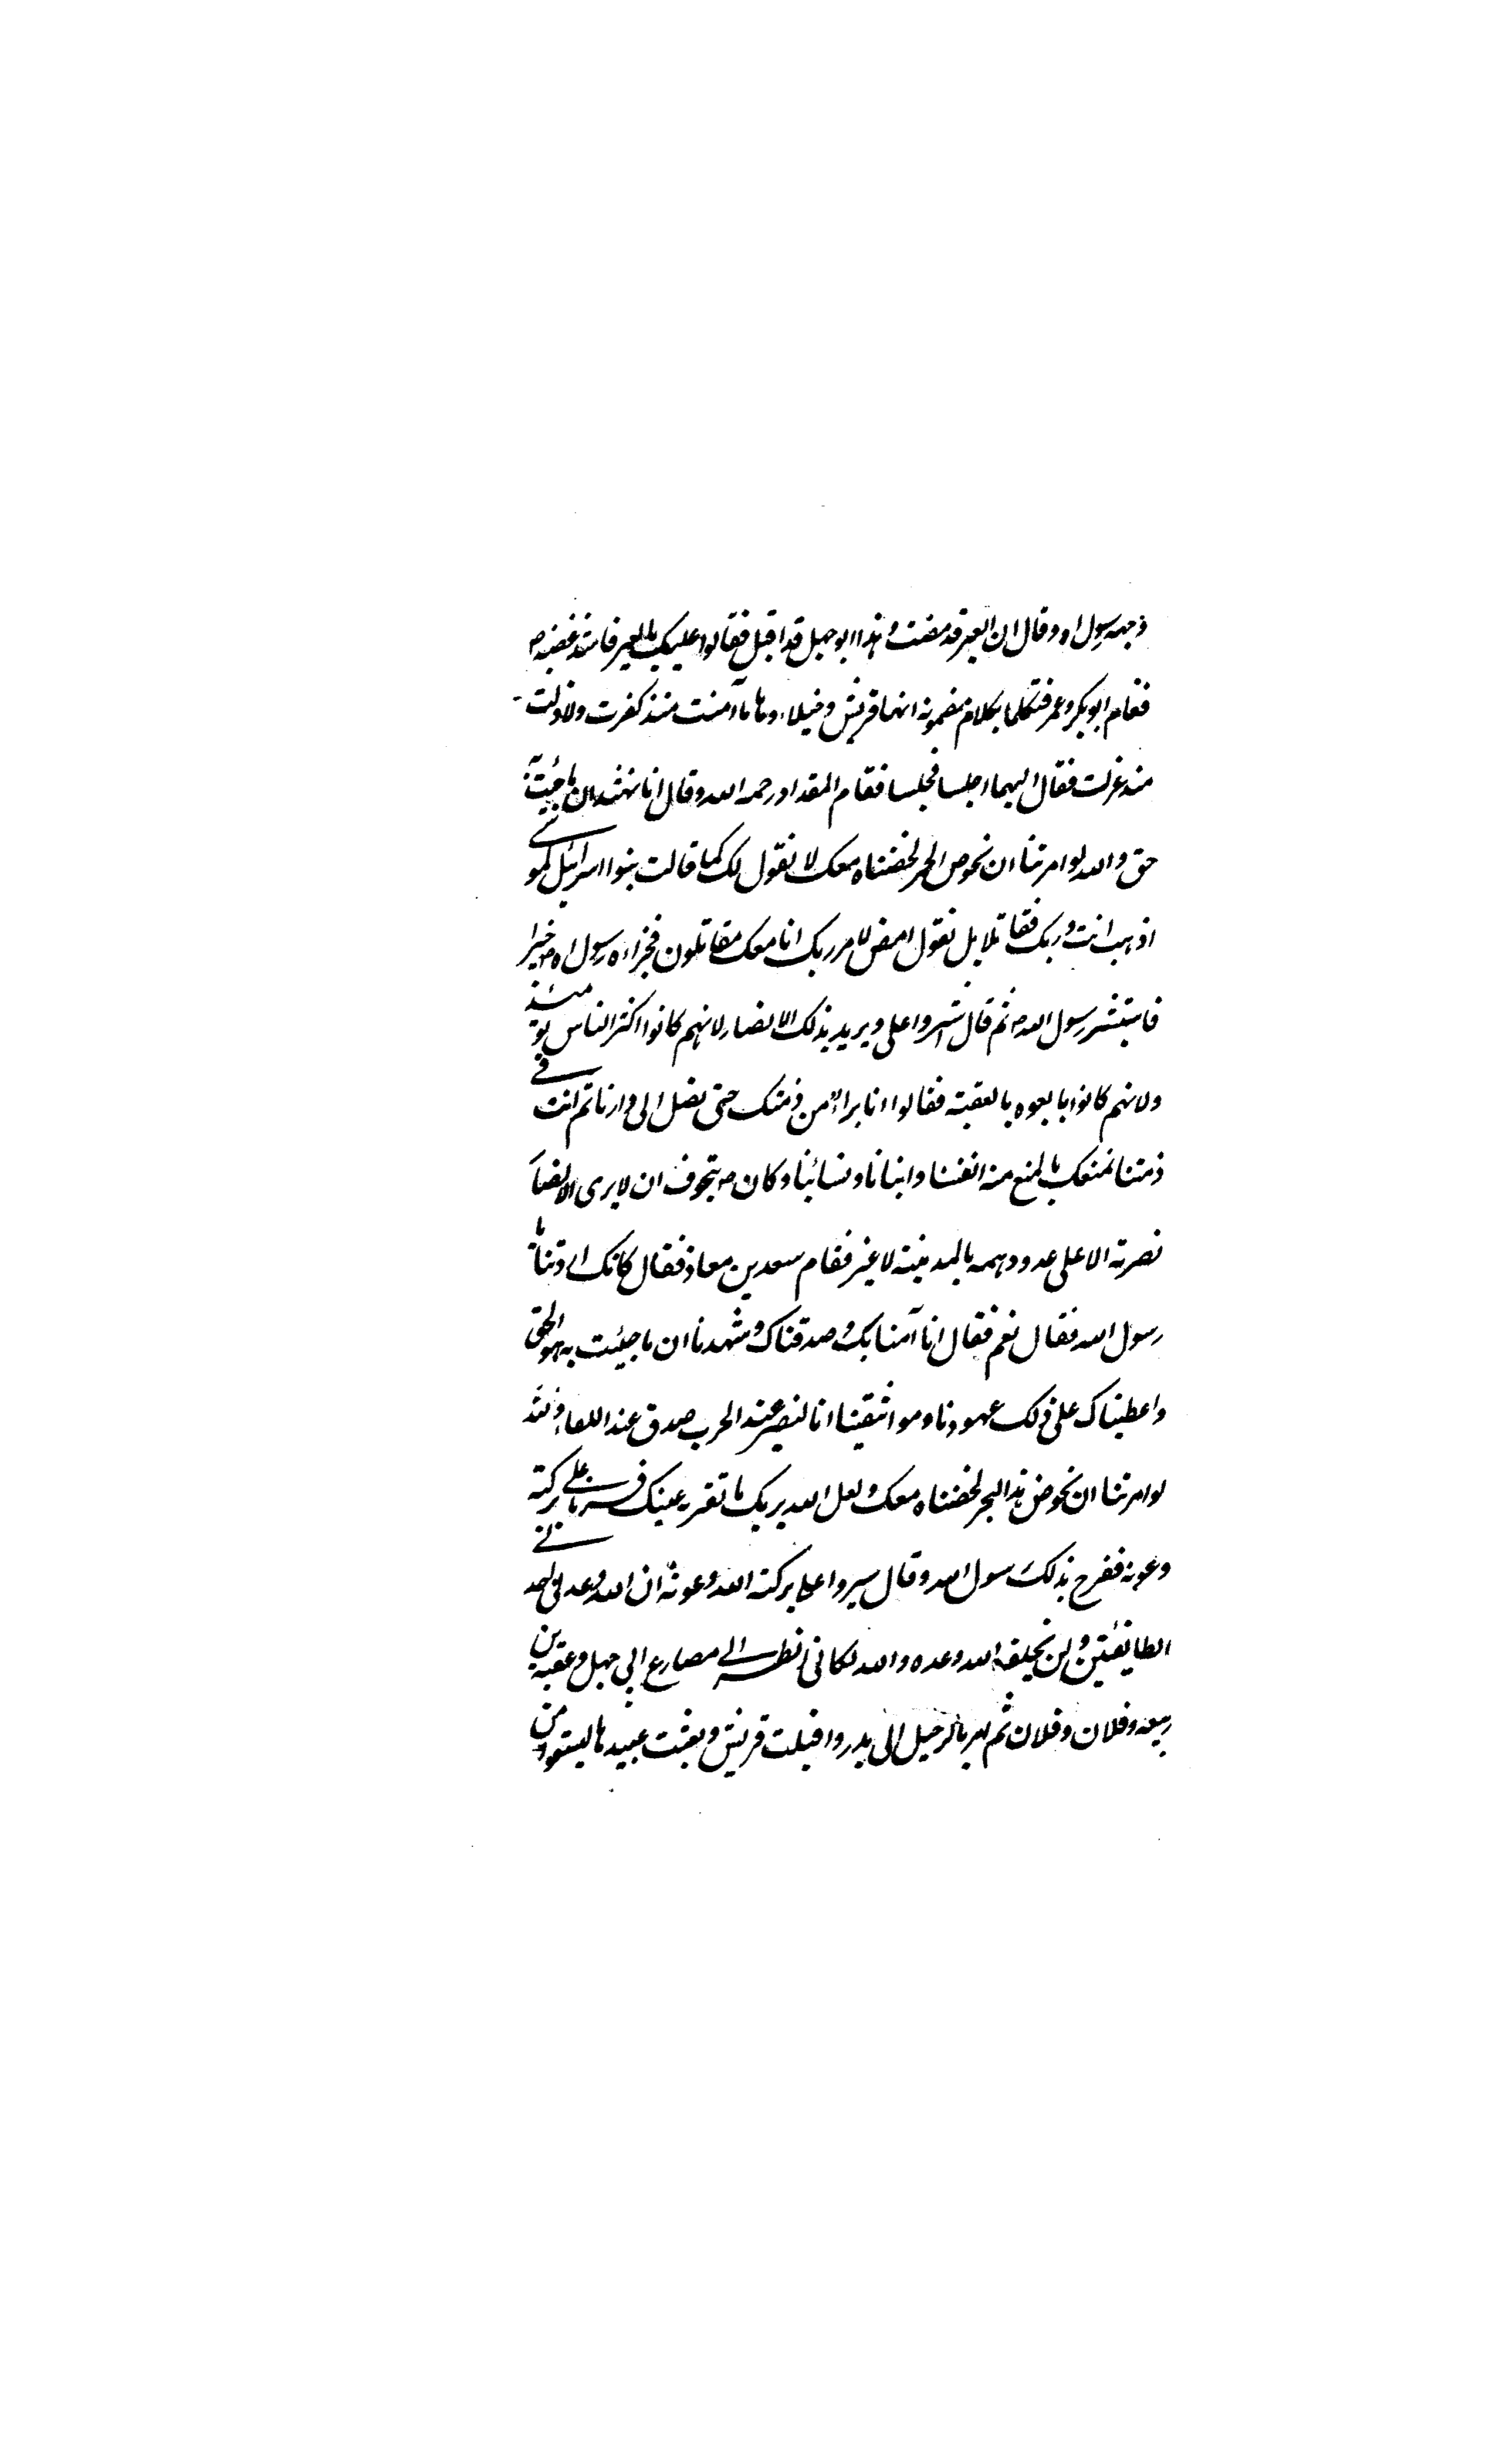 وجه رسول الله وقال ان العير قد مضت وهذا ابوجهل قد اقبل فقالوا عليك بالعير فاشتد غضبه ص
فقام ابوبكر وعمر فتكلما بكلام مضمونه انها قريش وخيلاءوها ما آمنت منذ كفرت ولا ذلت
منذ عزت فقال لهما اجلسا فجلسا فقام المقداد رحمه الله وقال انا نشهد ان ما جئت به
حق والله لو امرتنا ان نخوض الجمر لخضناه معك لا نقول لك كما قالت بنوا اسرائيل لموسى
اذهب انت وربك فقاتلا بل نقول امض لامر ربك انا معك مقاتلون فجزاه رسول الله ص خيرا
فاستبشر رسول الله ص ثم قال اشيروا على ويريد بذلك الانصار لانهم كانوا اكثر الناس يومئذ
ولانهم كانوا بايعوه بالعقبة فقالوا انا برآء من ذمتك حتى تصل الى دارنا ثم انت فى
ذمتنا نمنعك ما نمنع منه انفسنا وابنائنا ونسائنا وكان ص يتخوف ان لا يرى الانصار
نصرته الا على عدو دهمه بالمدينة لا غير فقام سعد بن معاذ فقال كانك اردتنا يا
رسول الله فقال نعم فقال انا آمنا بك وصدقناك وشهدنا ان ما جيئت به هو الحق
واعطيناك على ذلك عهودنا ومواثيقنا انا لنصير عند الحرب صدق عند اللقاء والله
لو امرتنا ان نخوض هذا البحر لخضناه معك ولعل الله يريك ما تقر به عينك فسر بنا على بركته
وعونه ففرح بذلك رسول الله وقال سيروا على بركة الله وعونه ان الله وعدنى احد
الطايفتين ولن يخلف الله وعده والله لكانى انظر الى مصارع ابى جهل وعقبة بن
ربيعه وفلان وفلان ثم امر بالرحيل الى بدر واقبلت قريش وبعثت عبيدها ليستقوا من